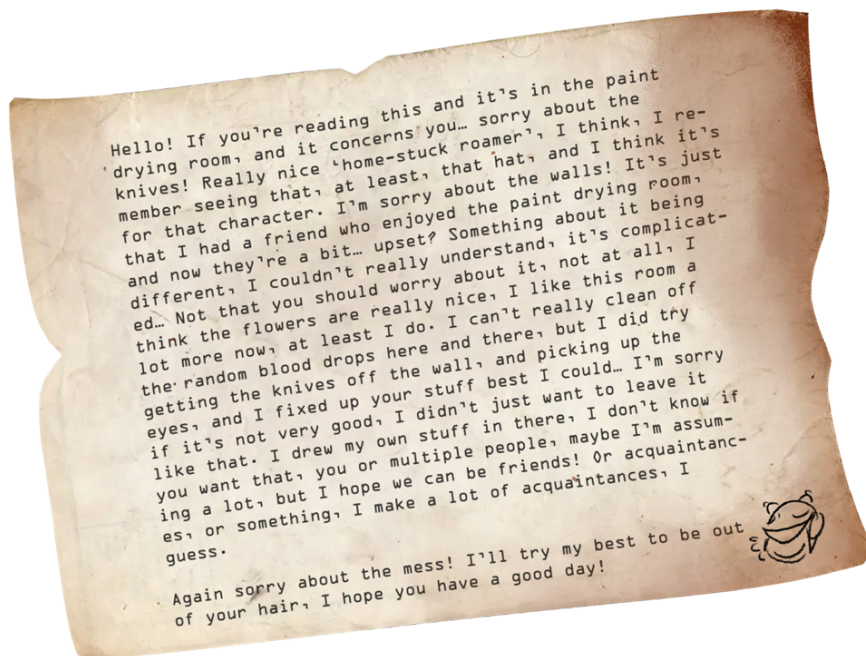 Hello! If you're reading this and it's in the paint
drying room, and it concerns you… sorry about the
knives! Really nice 'home-stuck roamer', I think, I re-
member seeing that, at least, that hat, and I think it's
for that character. I'm sorry about the walls! It's just
that I had a friend who enjoyed the paint drying room,
and now they're a bit… upset? Something about it being
different, I couldn't really understand, it's complicat-
ed… Not that you should worry about it, not at all, I
think the flowers are really nice, I like this room a
lot more now, at least I do. I can't really clean off
the random blood drops here and there, but I did try
getting the knives off the wall, and picking up the
eyes, and I fixed up your stuff best I could… I'm sorry
if it's not very good, I didn't just want to leave it
like that. I drew my own stuff in there, I don't know if
you want that, you or multiple people, maybe I'm assum-
ing a lot, but I hope we can be friends! Or acquaintanc-
es, or something, I make a lot of acquaintances, I
guess.

Again sorry about the mess! I'll try my best to be out
of your hair, I hope you have a good day!